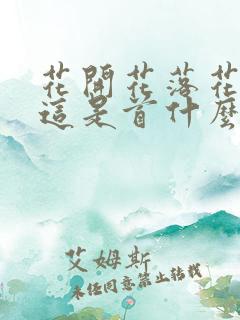 花開花落花
這是首什麼
艾姆斯
未经同意禁止转载